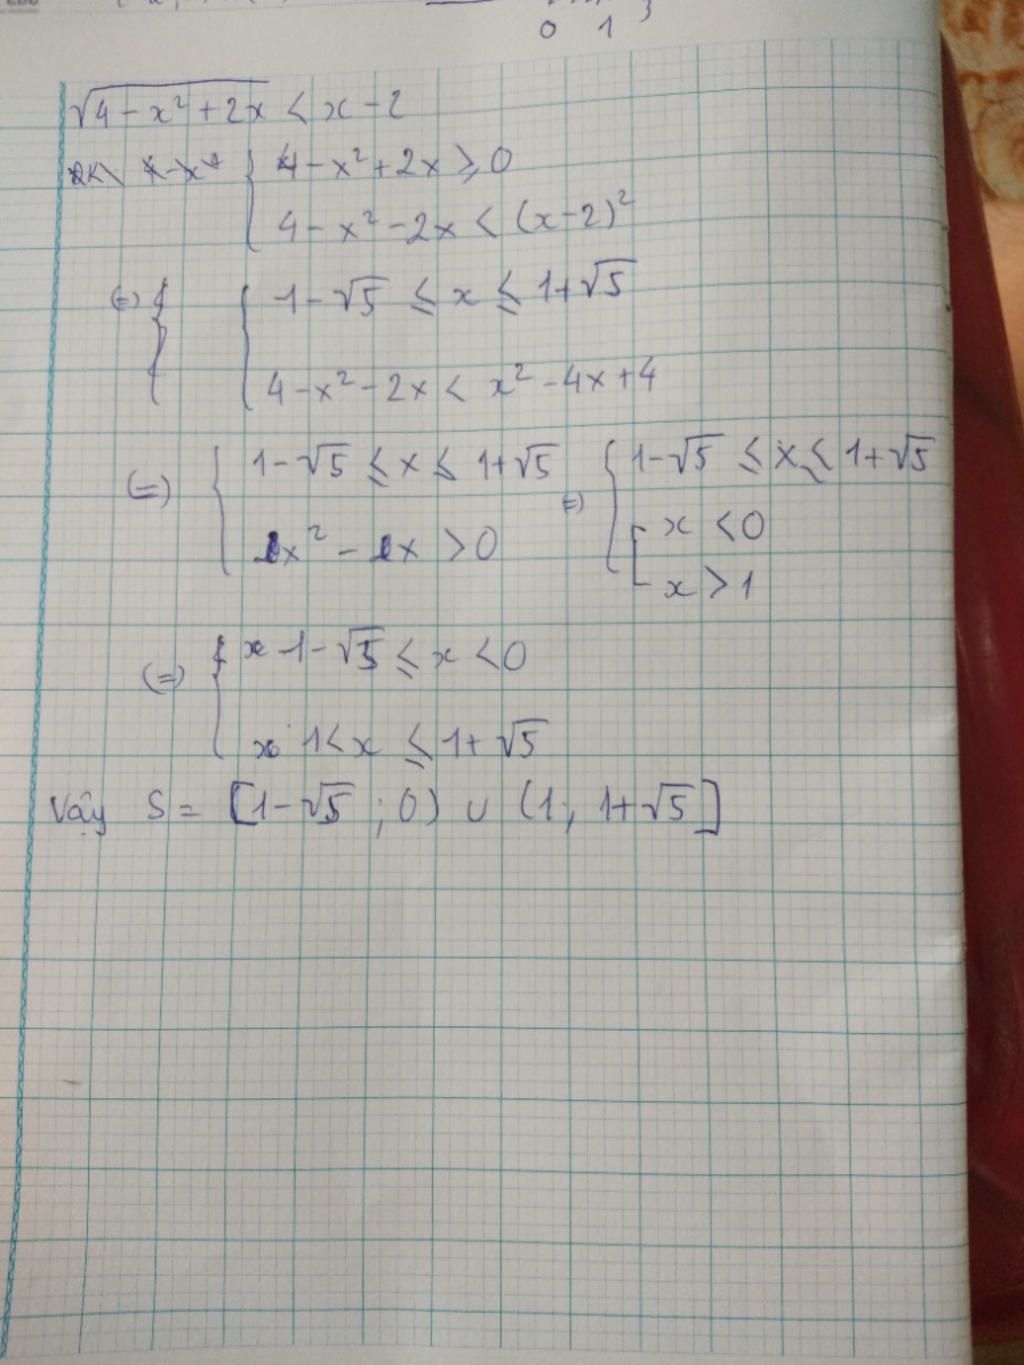 0 1
√(4 - x² + 2x) < x - 2
{ 4 - x² + 2x ⩾ 0
{ 4 - x² - 2x < (x-2)²
(=) { 1 - √5 ≤ x ≤ 1 + √5
{ 4 - x² - 2x < x² - 4x + 4
(=) { 1 - √5 ≤ x ≤ 1 + √5 (=) { 1 - √5 ≤ x ≤ 1 + √5
{ 2x² - 2x > 0 [ x < 0
[ x > 1
(=) { 1 - √5 ≤ x < 0
{ 1 < x ≤ 1 + √5
Vậy S = [1 - √5 ; 0) ∪ (1, 1 + √5]